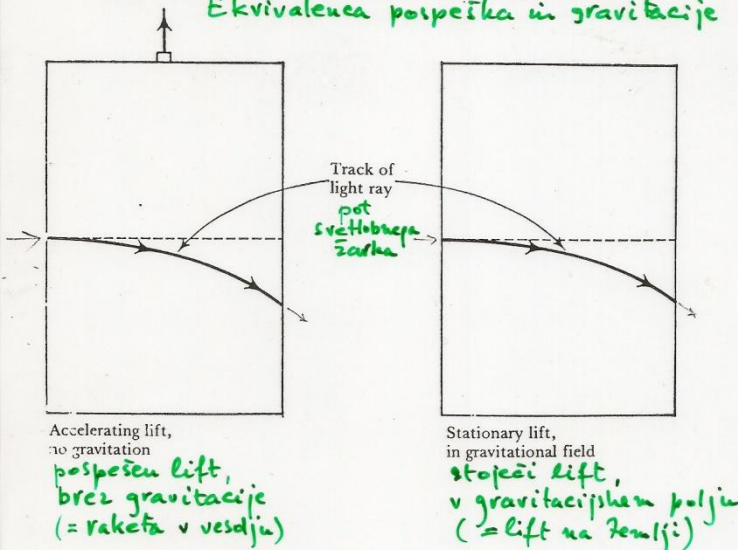 Ekvivalenca pospeška in gravitacije
Track of
light ray
pot
svetlobnega
žarka
Accelerating lift,
no gravitation
pospešen lift,
brez gravitacije
(= raketa v vesolju)
Stationary lift,
in gravitational field
stoječi lift,
v gravitacijskem polju
(= lift na Zemlji)